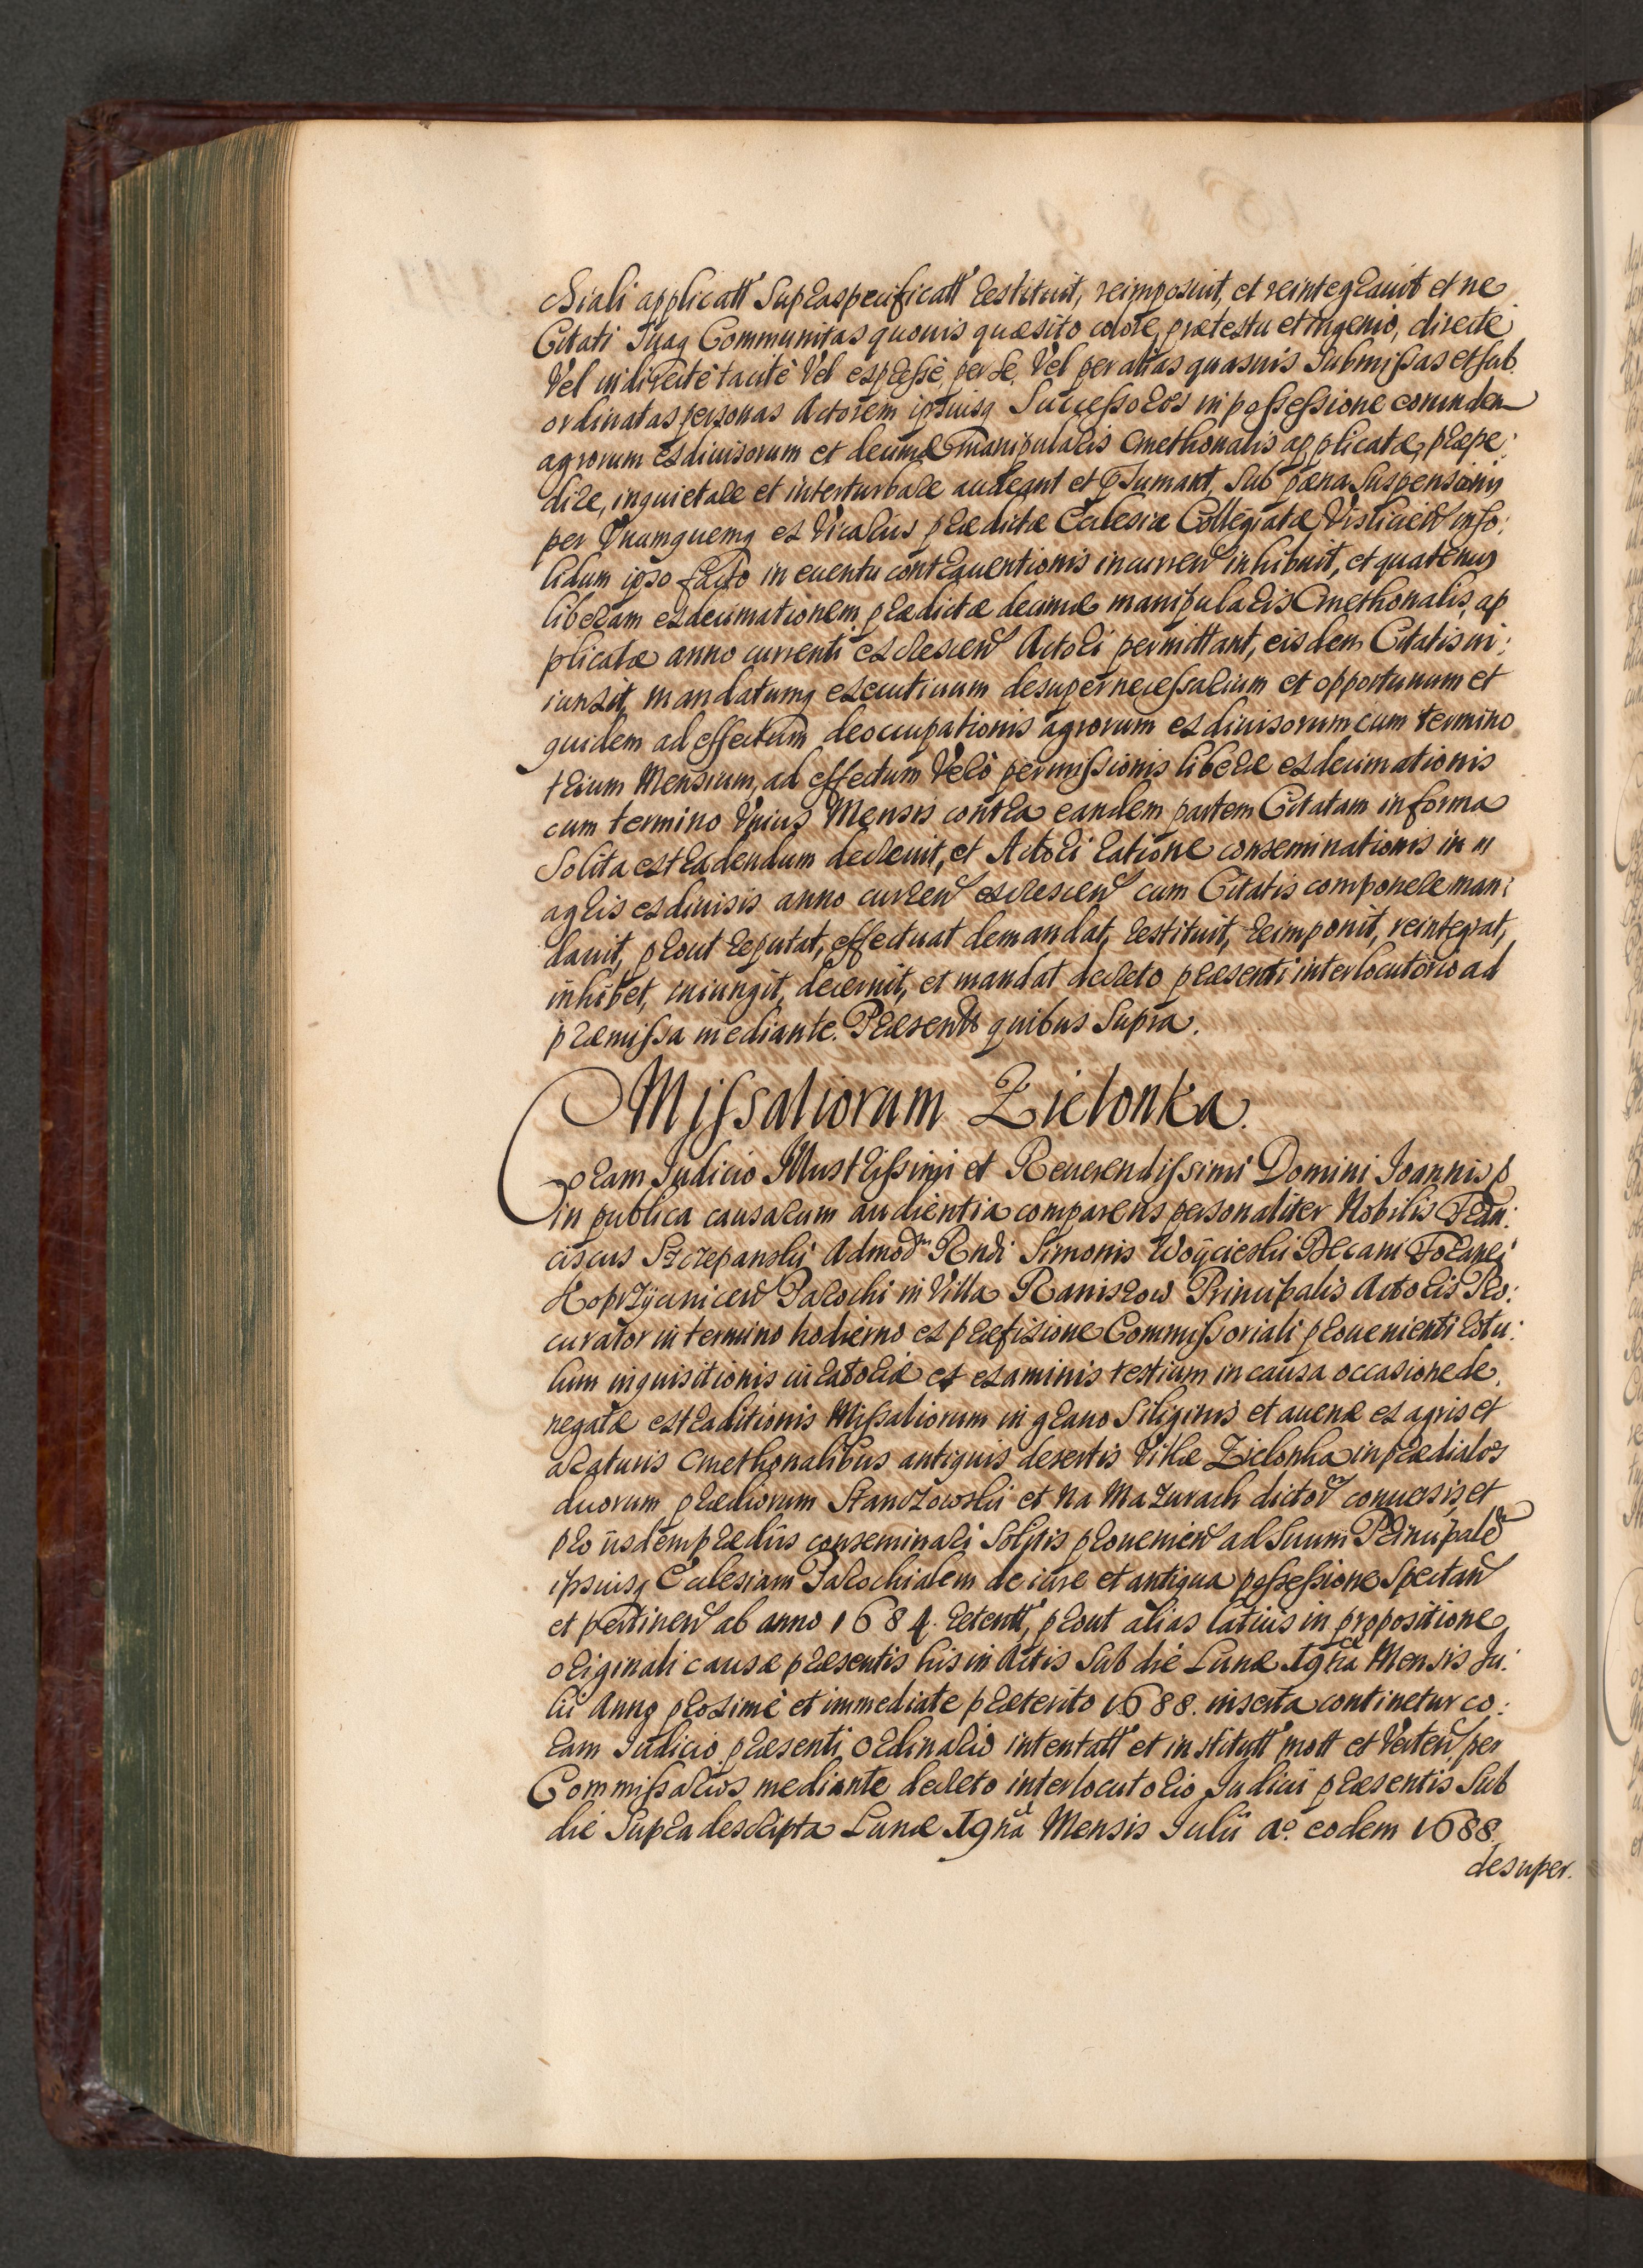 chiali applicatt Supraspecificatt restituit, reimposuit, et reintegrauit et ne
Citati Suaq Communitas quouis quæsito colore, prætextu et ingenio, directè
Vel indirectè tacitè Vel expressè, per se, Vel per alias quasuis Submissas et sub
ordinatas personas Actorem ipsiusq Successores in possessione eorundem
agrorum exdiuisorum et decimæ manipularis Cmethonalis applicatæ, præpe:
dire, inquietare et interturbare audeant et p̄sumant, Sub pæna Suspensionis
per Vnumquemq ex Vicariis prædictæ Ecclesiæ Collegiatæ Vislicien̄ inso:
lidum ipso facto in euentu contrauentionis incurren̄ inhibuit, et quatenus
liberam exdecimationem prædictæ decimæ manipularis Cmethonalis ap
plicatæ anno currenti excrescen̄ Actori permittant, eisdem Citatis in:
iunxit, mandatumq executiuum desuper necessarium et opportunum et
quidem ad effectum deoccupationis agrorum exdiuisorum cum termino
trium Mensium, ad effectum Verò permissionis liberæ exdecimationis
cum termino Vnius Mensis contra eandem partem Citatam in forma
Solita extradendum decreuit, et Actori ratione conseminationis in
agris exdiuisis anno curren̄ excrescen̄ cum Citatis componere man:
dauit, prout reputat, effectuat demandat, restituit, reimponit, reintegrat,
inhibet, iniungit, decernit, et mandat decreto præsenti interlocutorio ad
præmissa mediante. Præsentt quibus Supra.
Missaliorum Zielonka.
Coram Iudicio Illustrissimi et Reuerendissimi Domini Ioannis p
in publica causarum audientia comparens personaliter Nobilis Fran:
ciscus Szczepanski Admod̄m Rndi Simonis Woÿcieski Decani Foranei
Koprzÿwnicen̄ Parochi in Villa Ranisrow Principalis Actoris Pro:
curator in termino hodierno ex præfixione Commissoriali prouenienti rotu:
lum inquisitionis iuratoriæ et examinis testium in causa occasione de
negatæ extraditionis Missaliorum in grano Siliginis et auenæ ex agris et
araturis Cmethonalibus antiquis desertis Villæ Zielonka in prædiales
duorum prædiorum Stanczowski et Na Mazurach dictor̄ conuersis, et
pro iisdem prædiis conseminari Solitis prouenien̄ ad Suum Principalem
ipsiusq Ecclesiam Parochialem de iure et antiqua possessione Spectan̄
et pertinen̄ ab anno 1684. retentt, prout alias latius in propositione
originali causæ præsentis his in Actis Sub die Lunæ 19na Mensis Iu:
lii Anno proximè et immediate præterito 1688. inserta continetur co:
ram Iudicio præsenti ordinario intentatt et institutt mott et Verten̄ per
Commissarios mediante decreto interlocutorio Iudicii præsentis Sub
die Supra descripta Lunæ 19na Mensis Iulii aº. eodem 1688.
desuper.